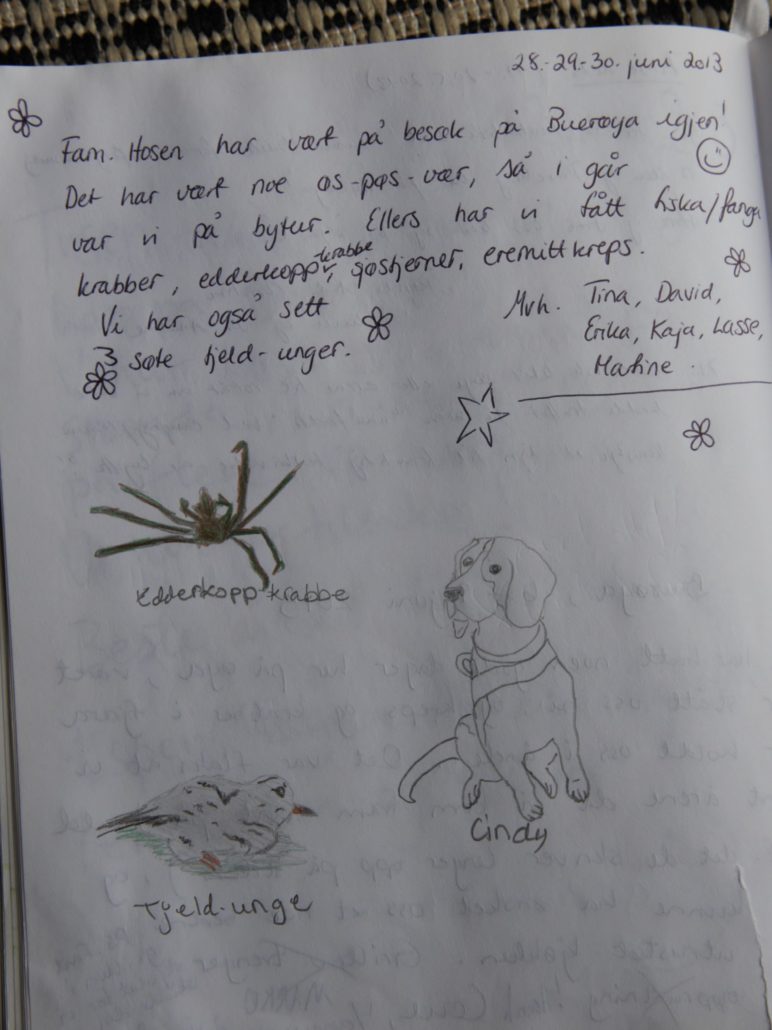 28.-29.-30. juni 2013
Fam. Hosen har vært på besøk på Buerøya igjen!
Det har vært noe os-pøs-vær, så i går
var vi på bytur. Ellers har vi fått fiska/fanga
krabber, edderkopp-krabbe, sjøstjerner, eremittkreps.
Vi har også sett
3 søte tjeld-unger.
Mvh. Tina, David,
Erika, Kaja, Lasse,
Martine.
Edderkopp-krabbe
Cindy
Tjeld-unge